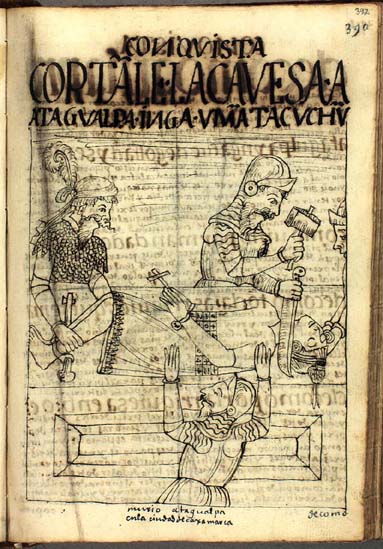 392
390
CONQVISTA
CORTÃLE·LACAVESA·A
ATAGVALPA·INGA·VMÃTACVCHŨ
murio atagualpa
en la ciudad de caxamarca
de como